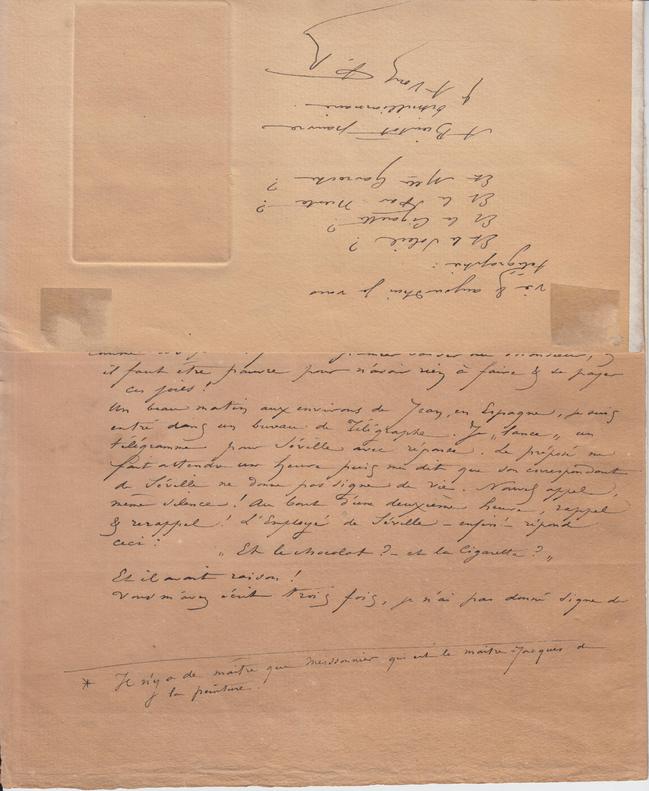 comme
il faut être pauvre pour n'avoir rien à faire & se payer
ces joies !
Un beau matin aux environs de Jean, en Espagne, je suis
entré dans un bureau de Télégraphe. Je "lance" un
télégramme pour Séville avec réponse. Le préposé me
fait attendre une heure puis me dit que son correspondant
de Séville ne donne pas signe de vie. Nouvel appel,
même silence ! Au bout d'une deuxième heure, rappel
& rerappel ! L'Employé de Séville – enfin – répond
ceci :
"Et le chocolat ? – et la Cigarette ?"
Et il avait raison !
Vous m'avez écrit trois fois, je n'ai pas donné signe de
* Il n'y a de maître que Meissonnier qui est le maître-Jacques de
la peinture.
vie & aujourd'hui je vous
télégraphie :
Et le Soleil ?
Et la Cigarette ?
Et la ?
Et Mlle Gavroche ?
A Bientôt pauvre
& A Vous F. R